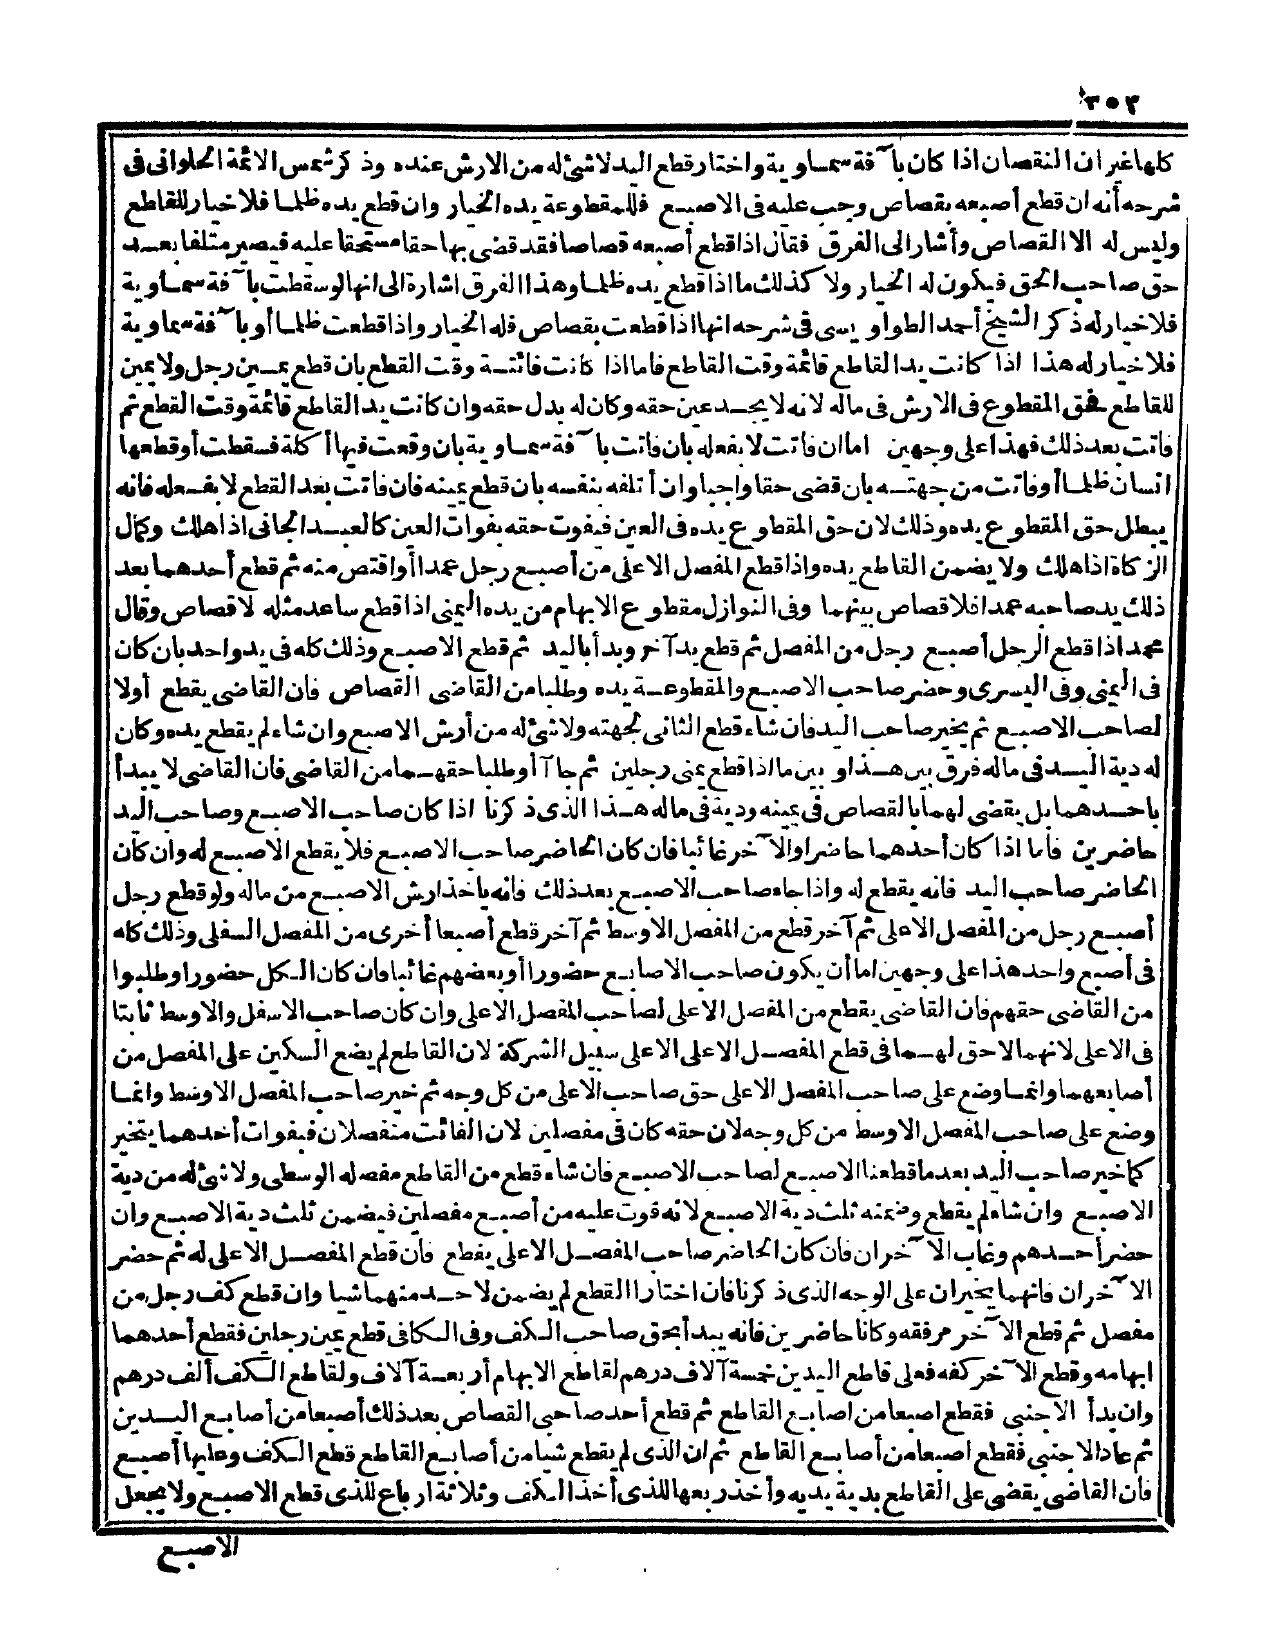 ٣٠٣
كلها غير ان النقصان اذا كان بآفة سماوية واختار قطع اليد لا شئ له من الارش عنده وذكر شمس الائمة الحلوانى فى
شرحه أنه ان قطع أصبعه بقصاص وجب عليه فى الاصبع فللمقطوعة يده الخيار وان قطع يده ظلما فلا خيار للقاطع
وليس له الا القصاص وأشار الى الفرق فقال اذا قطع أصبعه قصاصا فقد قضى بها حقا مستحقا عليه فيصير متلفا بعد
حق صاحب الحق فيكون له الخيار ولا كذلك ما اذا قطع يده ظلما وهذا الفرق اشارة الى انها لو سقطت بآفة سماوية
فلا خيار له ذكر الشيخ أحمد الطواويسى فى شرحه انها اذا قطعت بقصاص فله الخيار واذا قطعت ظلما أو بآفة سماوية
فلا خيار له هذا اذا كانت يد القاطع قائمة وقت القاطع فاما اذا كانت فائتة وقت القطع بان قطع يمين رجل ولا يمين
للقاطع فحق المقطوع فى الارش فى ماله لانه لا يجد عين حقه وكان له بدل حقه وان كانت يد القاطع قائمة وقت القطع ثم
فاتت بعد ذلك فهذا على وجهين اما ان فاتت لا بفعله بان فاتت بآفة سماوية بان وقعت فيها أكلة فسقطت أو قطعها
انسان ظلما أو فاتت من جهته بان قضى حقا واجبا وان أتلفه بنفسه بان قطع يمينه فان فاتت بعد القطع لا بفعله فانه
يبطل حق المقطوع يده وذلك لان حق المقطوع يده فى العين فيفوت حقه بفوات العين كالعبد الجانى اذا هلك وكمال
الزكاة اذا هلك ولا يضمن القاطع يده واذا قطع المفصل الاعلى من أصبع رجل عمدا أو اقتص منه ثم قطع أحدهما بعد
ذلك يد صاحبه عمدا فلا قصاص بينهما وفى النوازل مقطوع الابهام من يده اليمنى اذا قطع ساعد مثله لا قصاص وقال
محمد اذا قطع الرجل أصبع رجل من المفصل ثم قطع يد آخر وبدأ باليد ثم قطع الاصبع وذلك كله فى يد واحد بان كان
فى اليمنى وفى اليسرى وحضر صاحب الاصبع والمقطوعة يده وطلبا من القاضى القصاص فان القاضى يقطع أولا
لصاحب الاصبع ثم يخير صاحب اليد فان شاء قطع الثانى لجهته ولا شئ له من أرش الاصبع وان شاء لم يقطع يده وكان
له دية اليد فى ماله فرق بين هذا وبين ما اذا قطع يمنى رجلين ثم جاآ أو طلبا حقهما من القاضى فان القاضى لا يبدأ
باحدهما بل يقضى لهما بالقصاص فى يمينه ودية فى ماله هذا الذى ذكرنا اذا كان صاحب الاصبع وصاحب اليد
حاضرين فاما اذا كان أحدهما حاضرا والآخر غائبا فان كان الحاضر صاحب الاصبع فلا يقطع الاصبع له وان كان
الحاضر صاحب اليد فانه يقطع له واذا جاء صاحب الاصبع بعد ذلك فانه ياخذ ارش الاصبع من ماله ولو قطع رجل
أصبع رجل من المفصل الاعلى ثم آخر قطع من المفصل الاوسط ثم آخر قطع أصبعا أخرى من المفصل السفلى وذلك كله
فى أصبع واحد هذا على وجهين اما أن يكون صاحب الاصابع حضورا أو بعضهم غائبا فان كان الكل حضورا وطلبوا
من القاضى حقهم فان القاضى يقطع من المفصل الاعلى لصاحب المفصل الاعلى وان كان صاحب الاسفل والاوسط ثابتا
فى الاعلى لانهما لا حق لهما فى قطع المفصل الاعلى الاعلى سبيل الشركة لان القاطع لم يضع السكين على المفصل من
أصابعهما وانما وضع على صاحب المفصل الاعلى حق صاحب الاعلى من كل وجه ثم خير صاحب المفصل الاوسط وانما
وضع على صاحب المفصل الاوسط من كل وجه لان حقه كان فى مفصلين لان الفائت منفصلان فبفوات أحدهما يتخير
كما خير صاحب اليد بعد ما قطعنا الاصبع لصاحب الاصبع فان شاء قطع من القاطع مفصله الوسطى ولا شئ له من دية
الاصبع وان شاء لم يقطع وضمنه ثلث دية الاصبع لانه فوت عليه من أصبع مفصلين فيضمن ثلث دية الاصبع وان
حضر أحدهم وغاب الآخران فان كان الحاضر صاحب المفصل الاعلى يقطع فان قطع المفصل الاعلى له ثم حضر
الآخران فانهما يخيران على الوجه الذى ذكرنا فان اختارا القطع لم يضمن لاحد منهما شيا وان قطع كف رجل من
مفصل ثم قطع الآخر مرفقه وكانا حاضرين فانه يبدأ بحق صاحب الكف وفى الكافى قطع عين رجلين فقطع أحدهما
ابهامه وقطع الآخر كفه فعلى قاطع اليدين خمسة آلاف درهم لقاطع الابهام أربعة آلاف ولقاطع الكف ألف درهم
وان بدأ الاجنبى فقطع اصبعا من اصابع القاطع ثم قطع أحد صاحبى القصاص بعد ذلك أصبعا من أصابع اليدين
ثم عاد الاجنبى فقطع اصبعا من أصابع القاطع ثم ان الذى لم يقطع شيا من أصابع القاطع قطع الكف وعليها أصبع
فان القاضى يقضى على القاطع بدية يديه وأخذ ربعها للذى أخذ الكف وثلاثة ارباع للذى قطع الاصبع ولا يجعل
الاصبع